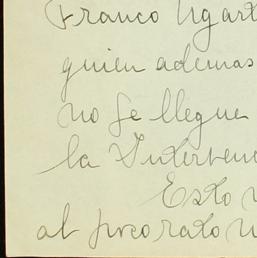 Franco Ugart
quien ademas
no se llegue
la Interven
Esto
al